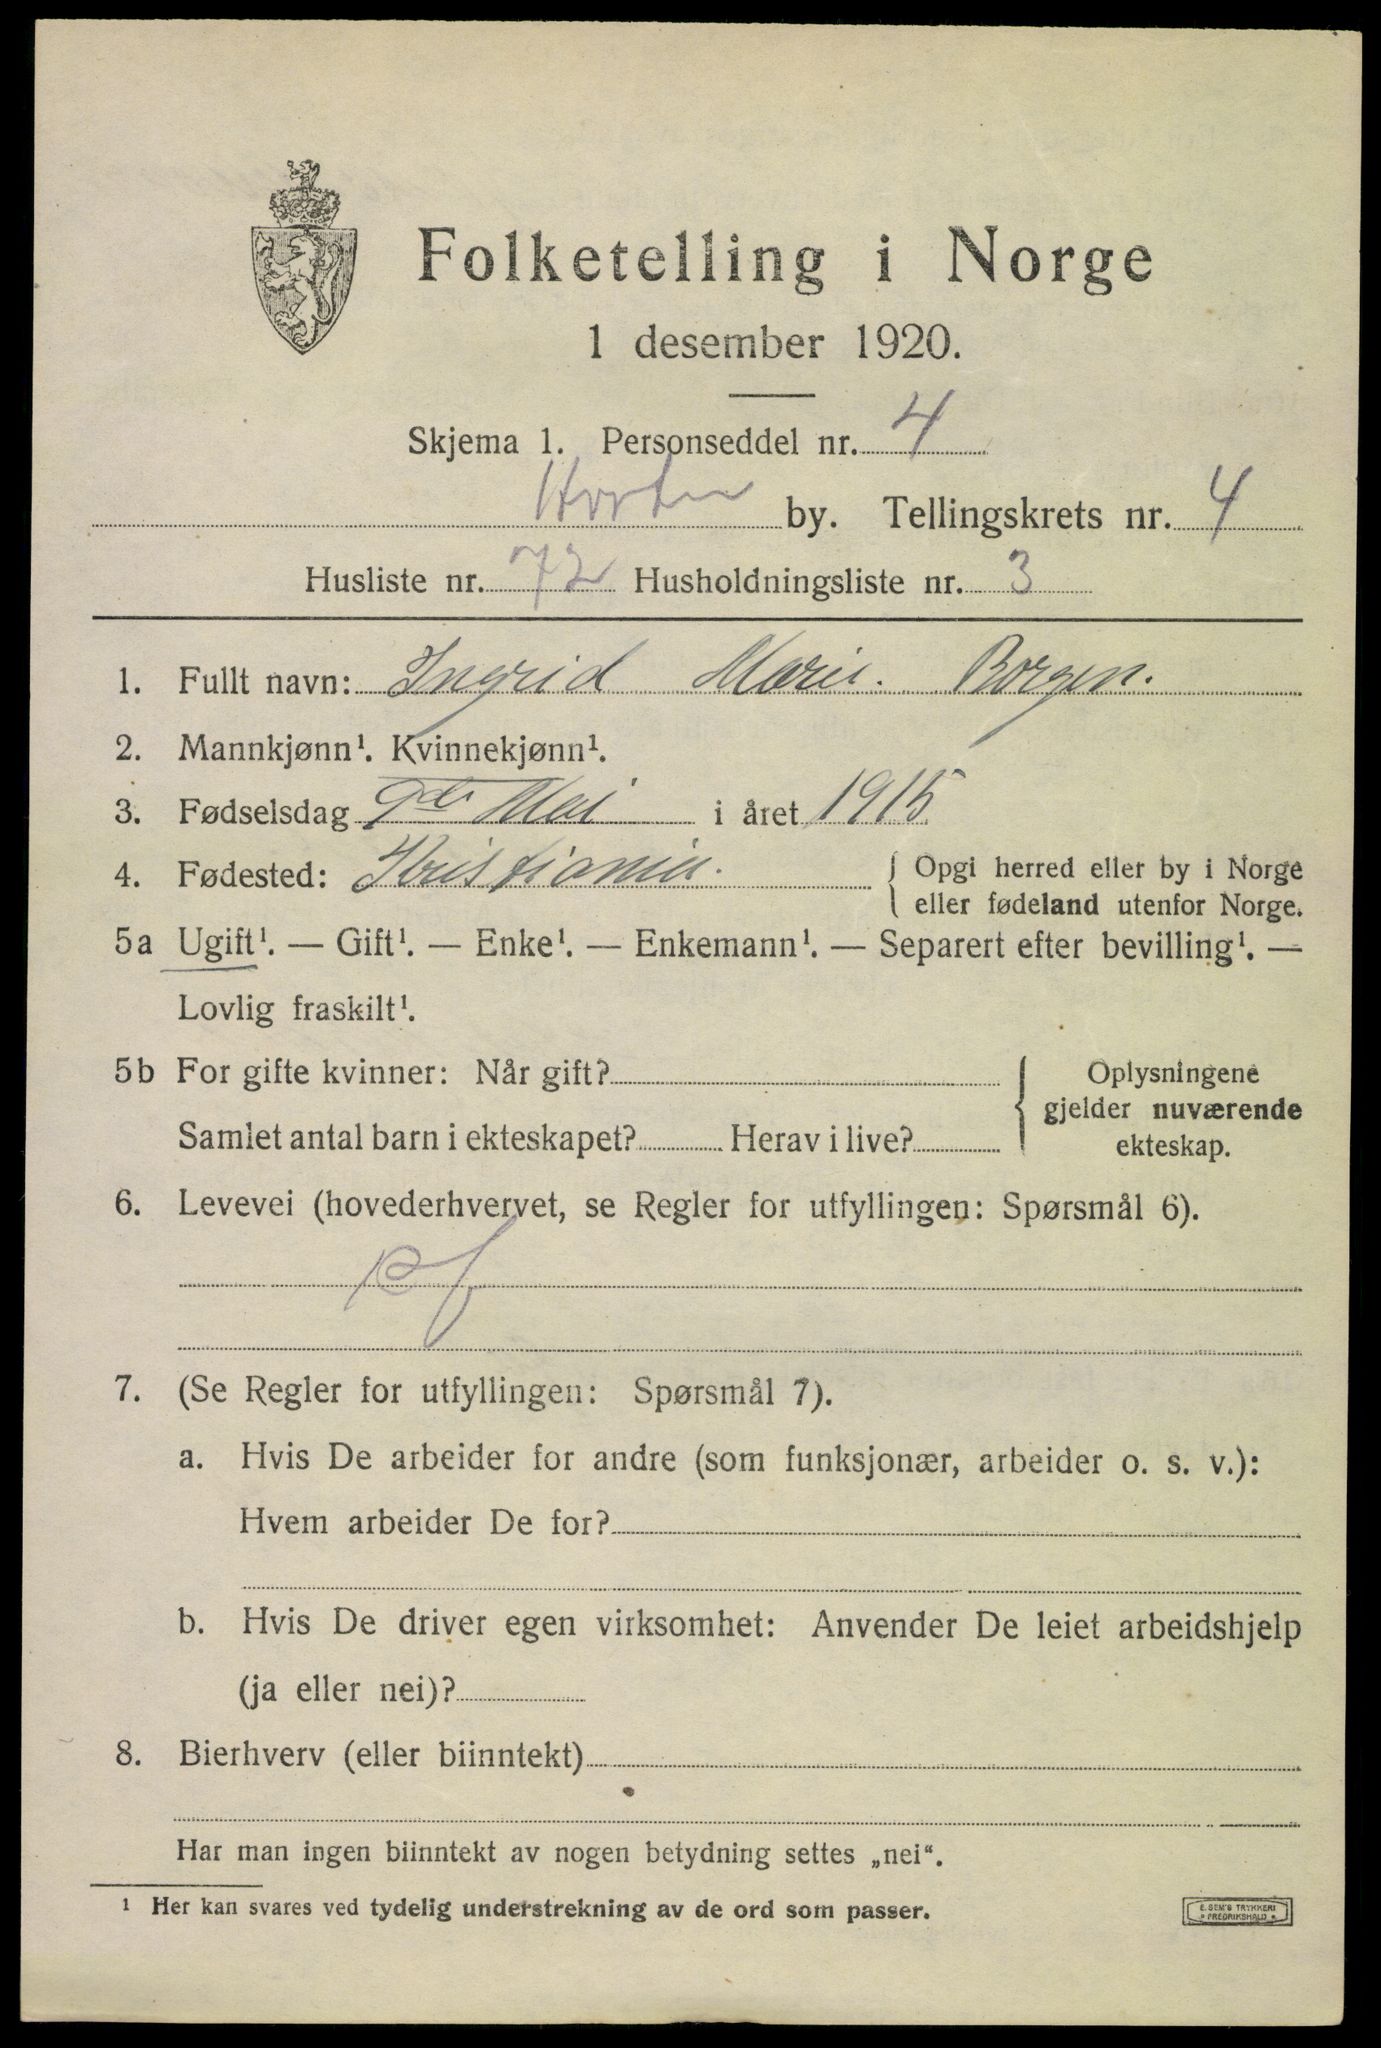 Folketelling i Norge
1 desember 1920.
Skjema 1. Personseddel nr. 4
Horten by. Tellingskrets nr. 4
Husliste nr. 72 Husholdningsliste nr. 3
1. Fullt navn: Ingrid Marie. Borgen.
2. Mannkjønn¹. Kvinnekjønn¹.
3. Fødselsdag 9de Mai i året 1915
4. Fødested: Kristiania. { Opgi herred eller by i Norge
eller fødeland utenfor Norge.
5a Ugift¹. — Gift¹. — Enke¹. — Enkemann¹. — Separert efter bevilling¹. —
Lovlig fraskilt¹.
5b For gifte kvinner: Når gift? { Oplysningene
gjelder nuværende
Samlet antal barn i ekteskapet? Herav i live? ekteskap.
6. Levevei (hovederhvervet, se Regler for utfyllingen: Spørsmål 6).
7. (Se Regler for utfyllingen: Spørsmål 7).
a. Hvis De arbeider for andre (som funksjonær, arbeider o. s. v.):
Hvem arbeider De for?
b. Hvis De driver egen virksomhet: Anvender De leiet arbeidshjelp
(ja eller nei)?
8. Bierhverv (eller biinntekt)
Har man ingen biinntekt av nogen betydning settes „nei“.
¹ Her kan svares ved tydelig understrekning av de ord som passer.
E. SEM'S TRYKKERI
FREDRIKSHALD